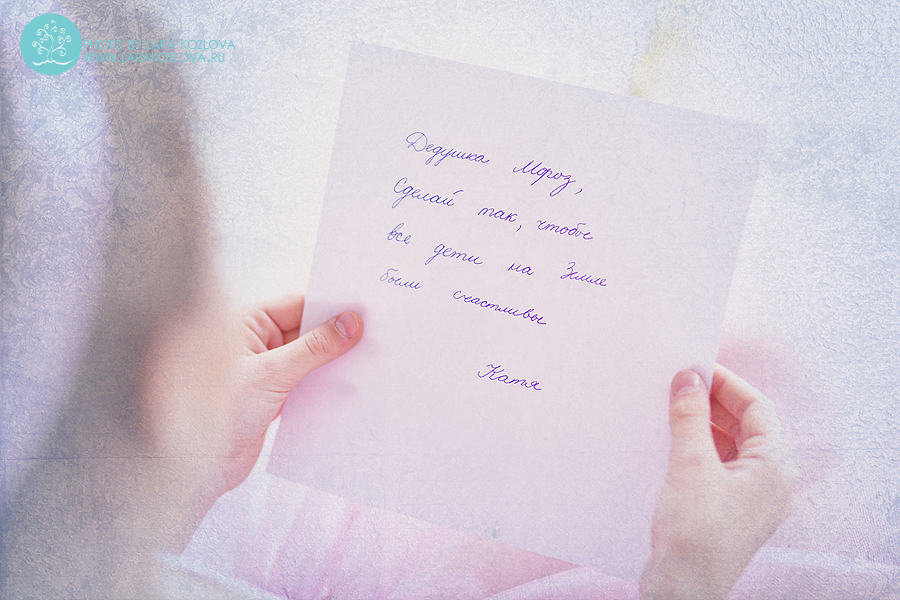 PHOTO BY LARA KOZLOVA
Дедушка Мороз,
Сделай так, чтобы
все дети на Земле
были счастливы
Катя